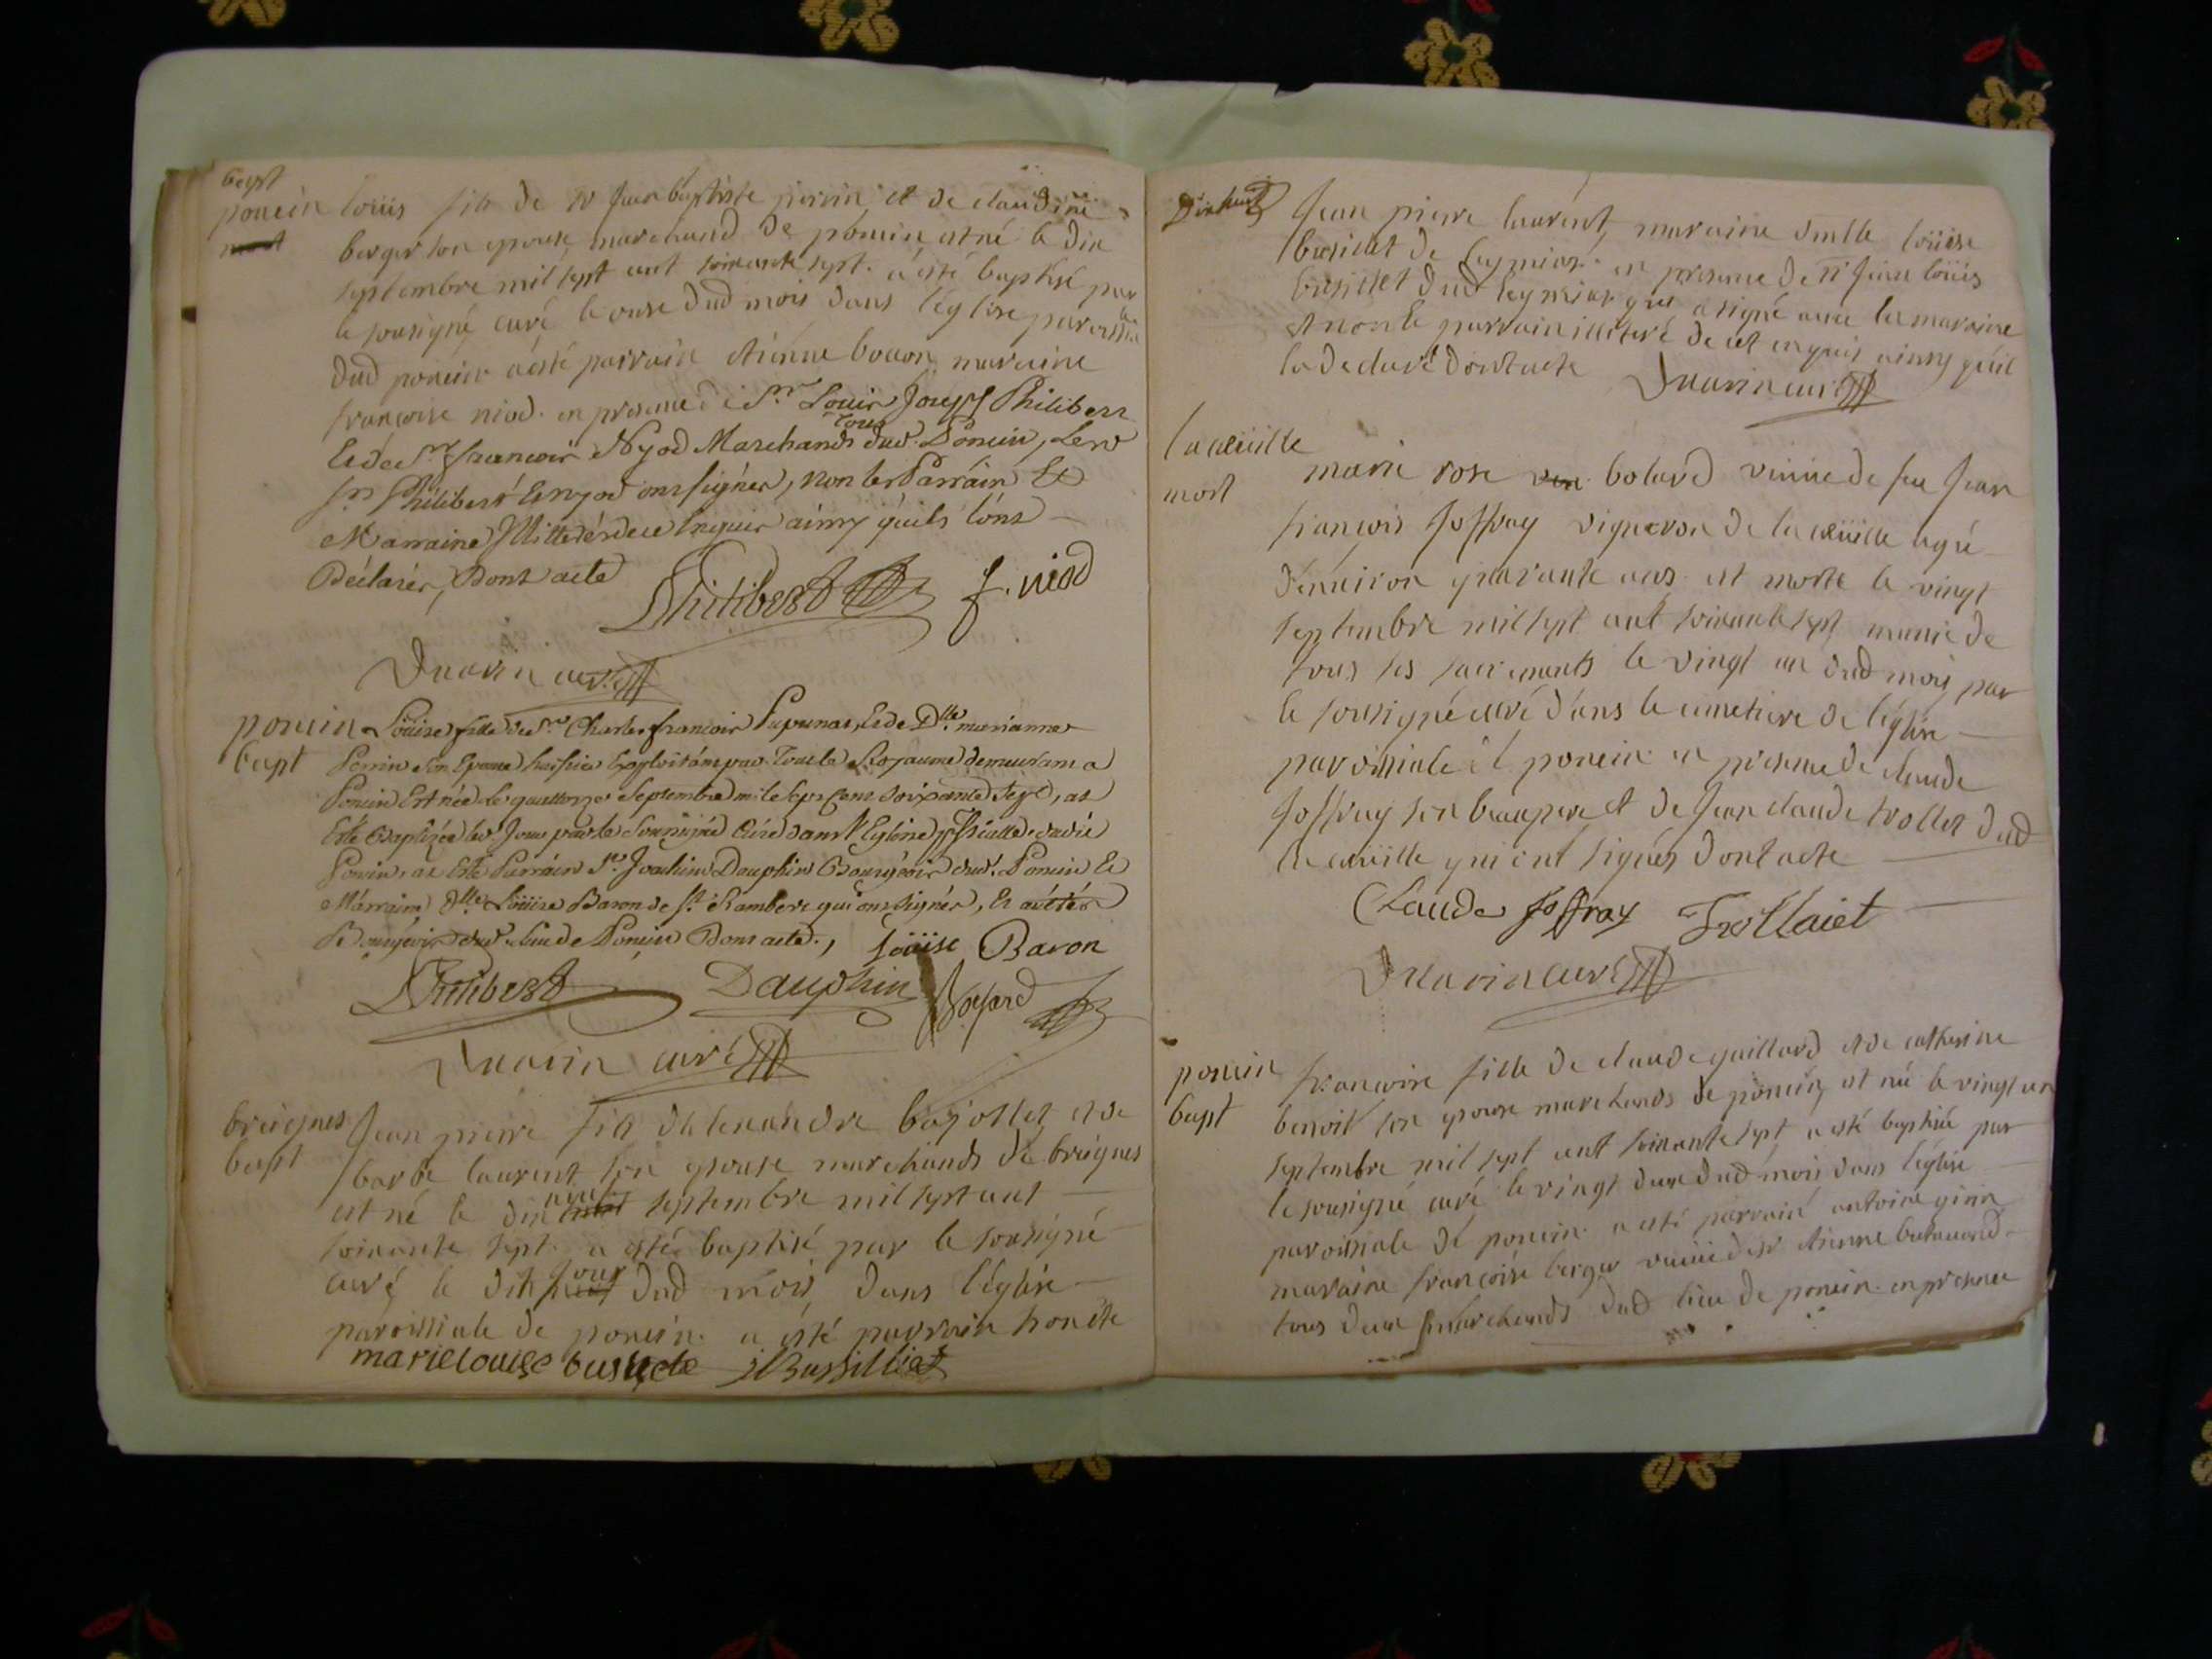 bapt
poncin louis fils de sr Jean baptiste perrin et de claudine
mort
berger son epouse marchand de poncin est né le dix
septembre mil sept cent soixante sept. a esté baptisé par
le sousigné curé le onse dud mois dans l'église paroissia
le
dud poncin a esté parrain étiénne bocon, maraine
francoise niod. en presence de Sr. Louis Joseph Philibert
tous
Et de Sr. francois Nyod Marchands dud. Poncin, Lesd
srs Philibert Et nyod ont signés, non les Parrain Et
Marraine Illitterés de ce Enquis ainsy quils l'ont
Déclarés, Dont acte
Philibert f. niod
Duarin curé
poncin Loüise fille de Sr. Charles francois Pupunat, Et de Dlle. marianne
bapt Perrin son Epouse huissier Exploitant par Tout le Royaume demeurant a
Poncin Est née le quattorze Septembre mile Sept Cent Soixante Sept, at
Esté Baptizée led Jour par le Sousigné Curé dans l'Eglise pssialle dudit
Poncin, at Esté Parrain Sr. Joachim Dauphin Bourgeois dud. Poncin Et
Marraine Dlle. Loüise Baron de St. Rambert qui ont signés, Et
Bourgeois dud. Lieu de Poncin Dont acte., Loüise Baron
Philibert Dauphin
Duarin curé
breignes Jean pierre fils d'alexandre bajollet et de
bapt barbe laurent son epouse marchands de breignes
neuf
est né le dix huit septembre mil sept cent
soixante sept. a esté baptisé par le sousigné
jour
curé le dit dud mois dans l'église
paroissiale de poncin. a esté parrain honéte
marie louise J Bussilliet
Jean pierre laurent, maraine dmlle loüise
busillet de leymiat. en presence de sr Jean loüis
busillet dud leymiat qui a signé avec la maraine
et non le parrain illiteré de cet enquis ainsy qu'il
la declaré dont acte Duarin curé
la cueille
mort marie rose bolard veuve de feu Jean
françois Joffray vigneron de la cueille agé
d'environ quarante ans. est morte le vingt
septembre mil sept cent soixante sept munie de
tous les sacrements le vingt un dud mois par
le sousigné curé dans le cimetiere de l'église
paroissiale de poncin en presence de claude
Joffray son beaupere et de Jean claude trollet dud
la cueille qui ont signés dont acte
Claude Joffray Trollaiet
Duarin curé
poncin francoise fille de claude gaillard et de catherine
bapt benoit son epouse marchands de poncin, est née le vingt un
septembre mil sept cent soixante sept a esté baptisée par
le sousigné curé le vingt deux dud mois dans l'église
paroissiale de poncin. a esté parrain antoine
maraine françoise berger veuve de sr étienne
tous deux marchands dud lieu de poncin. en presence